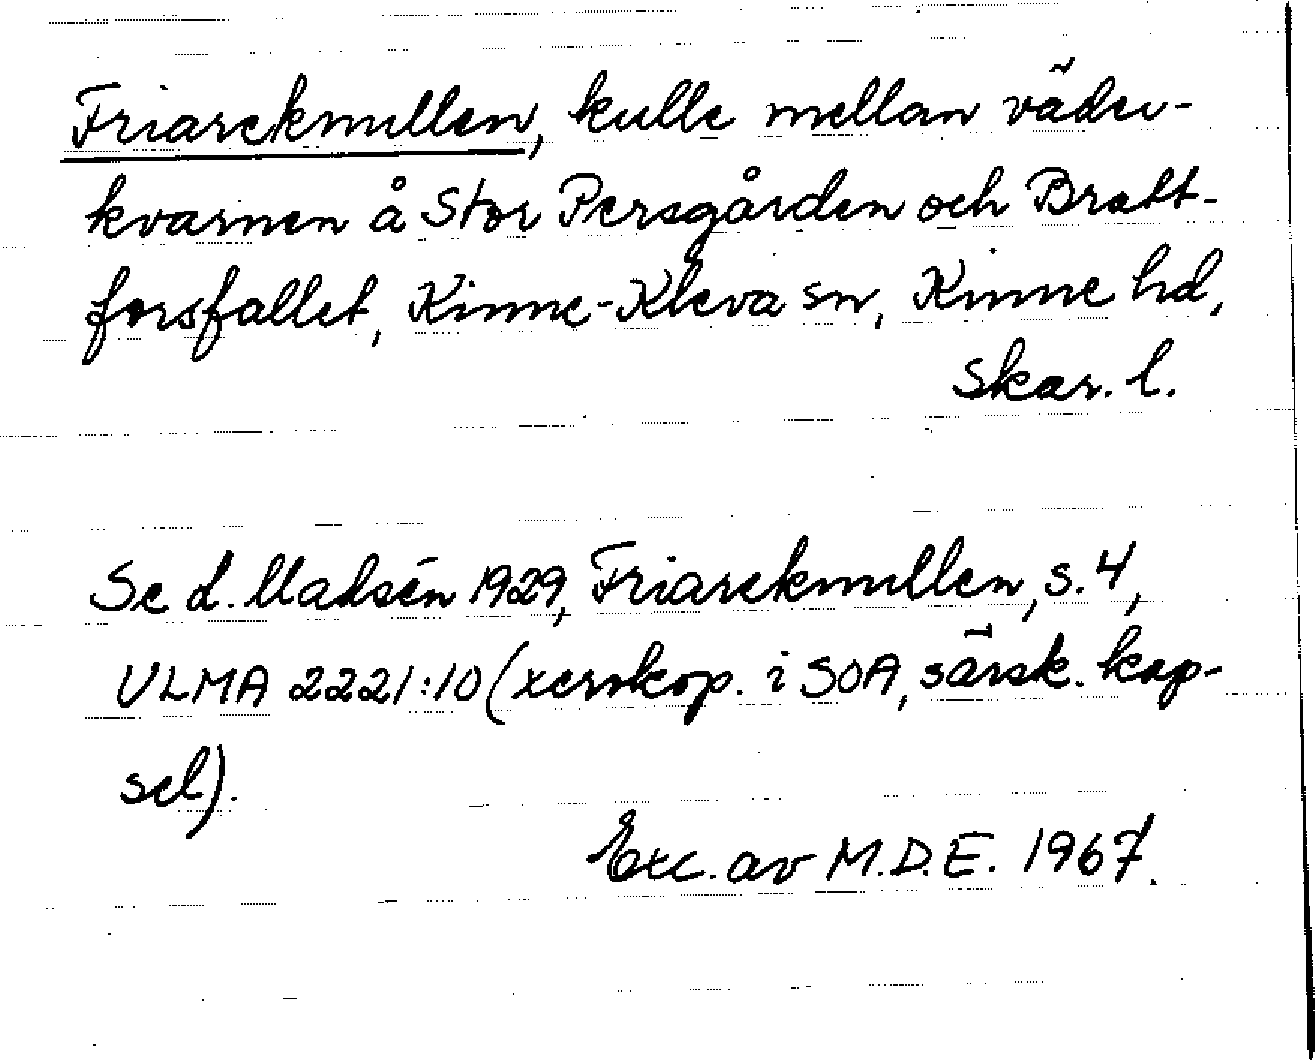 Friarekmullen, kulle mellan väder-
kvarnen å Stor Persgården och Bratt-
forsfallet, Kinne-Kleva sn, Kinne hd,
Skar. l.
Se L. Madsén 1929, Friarekmullen, s. 4,
ULMA 2221:10 (xerokop. i SOA, särsk. kap-
sel).
Exc. av M.D.E. 1967.